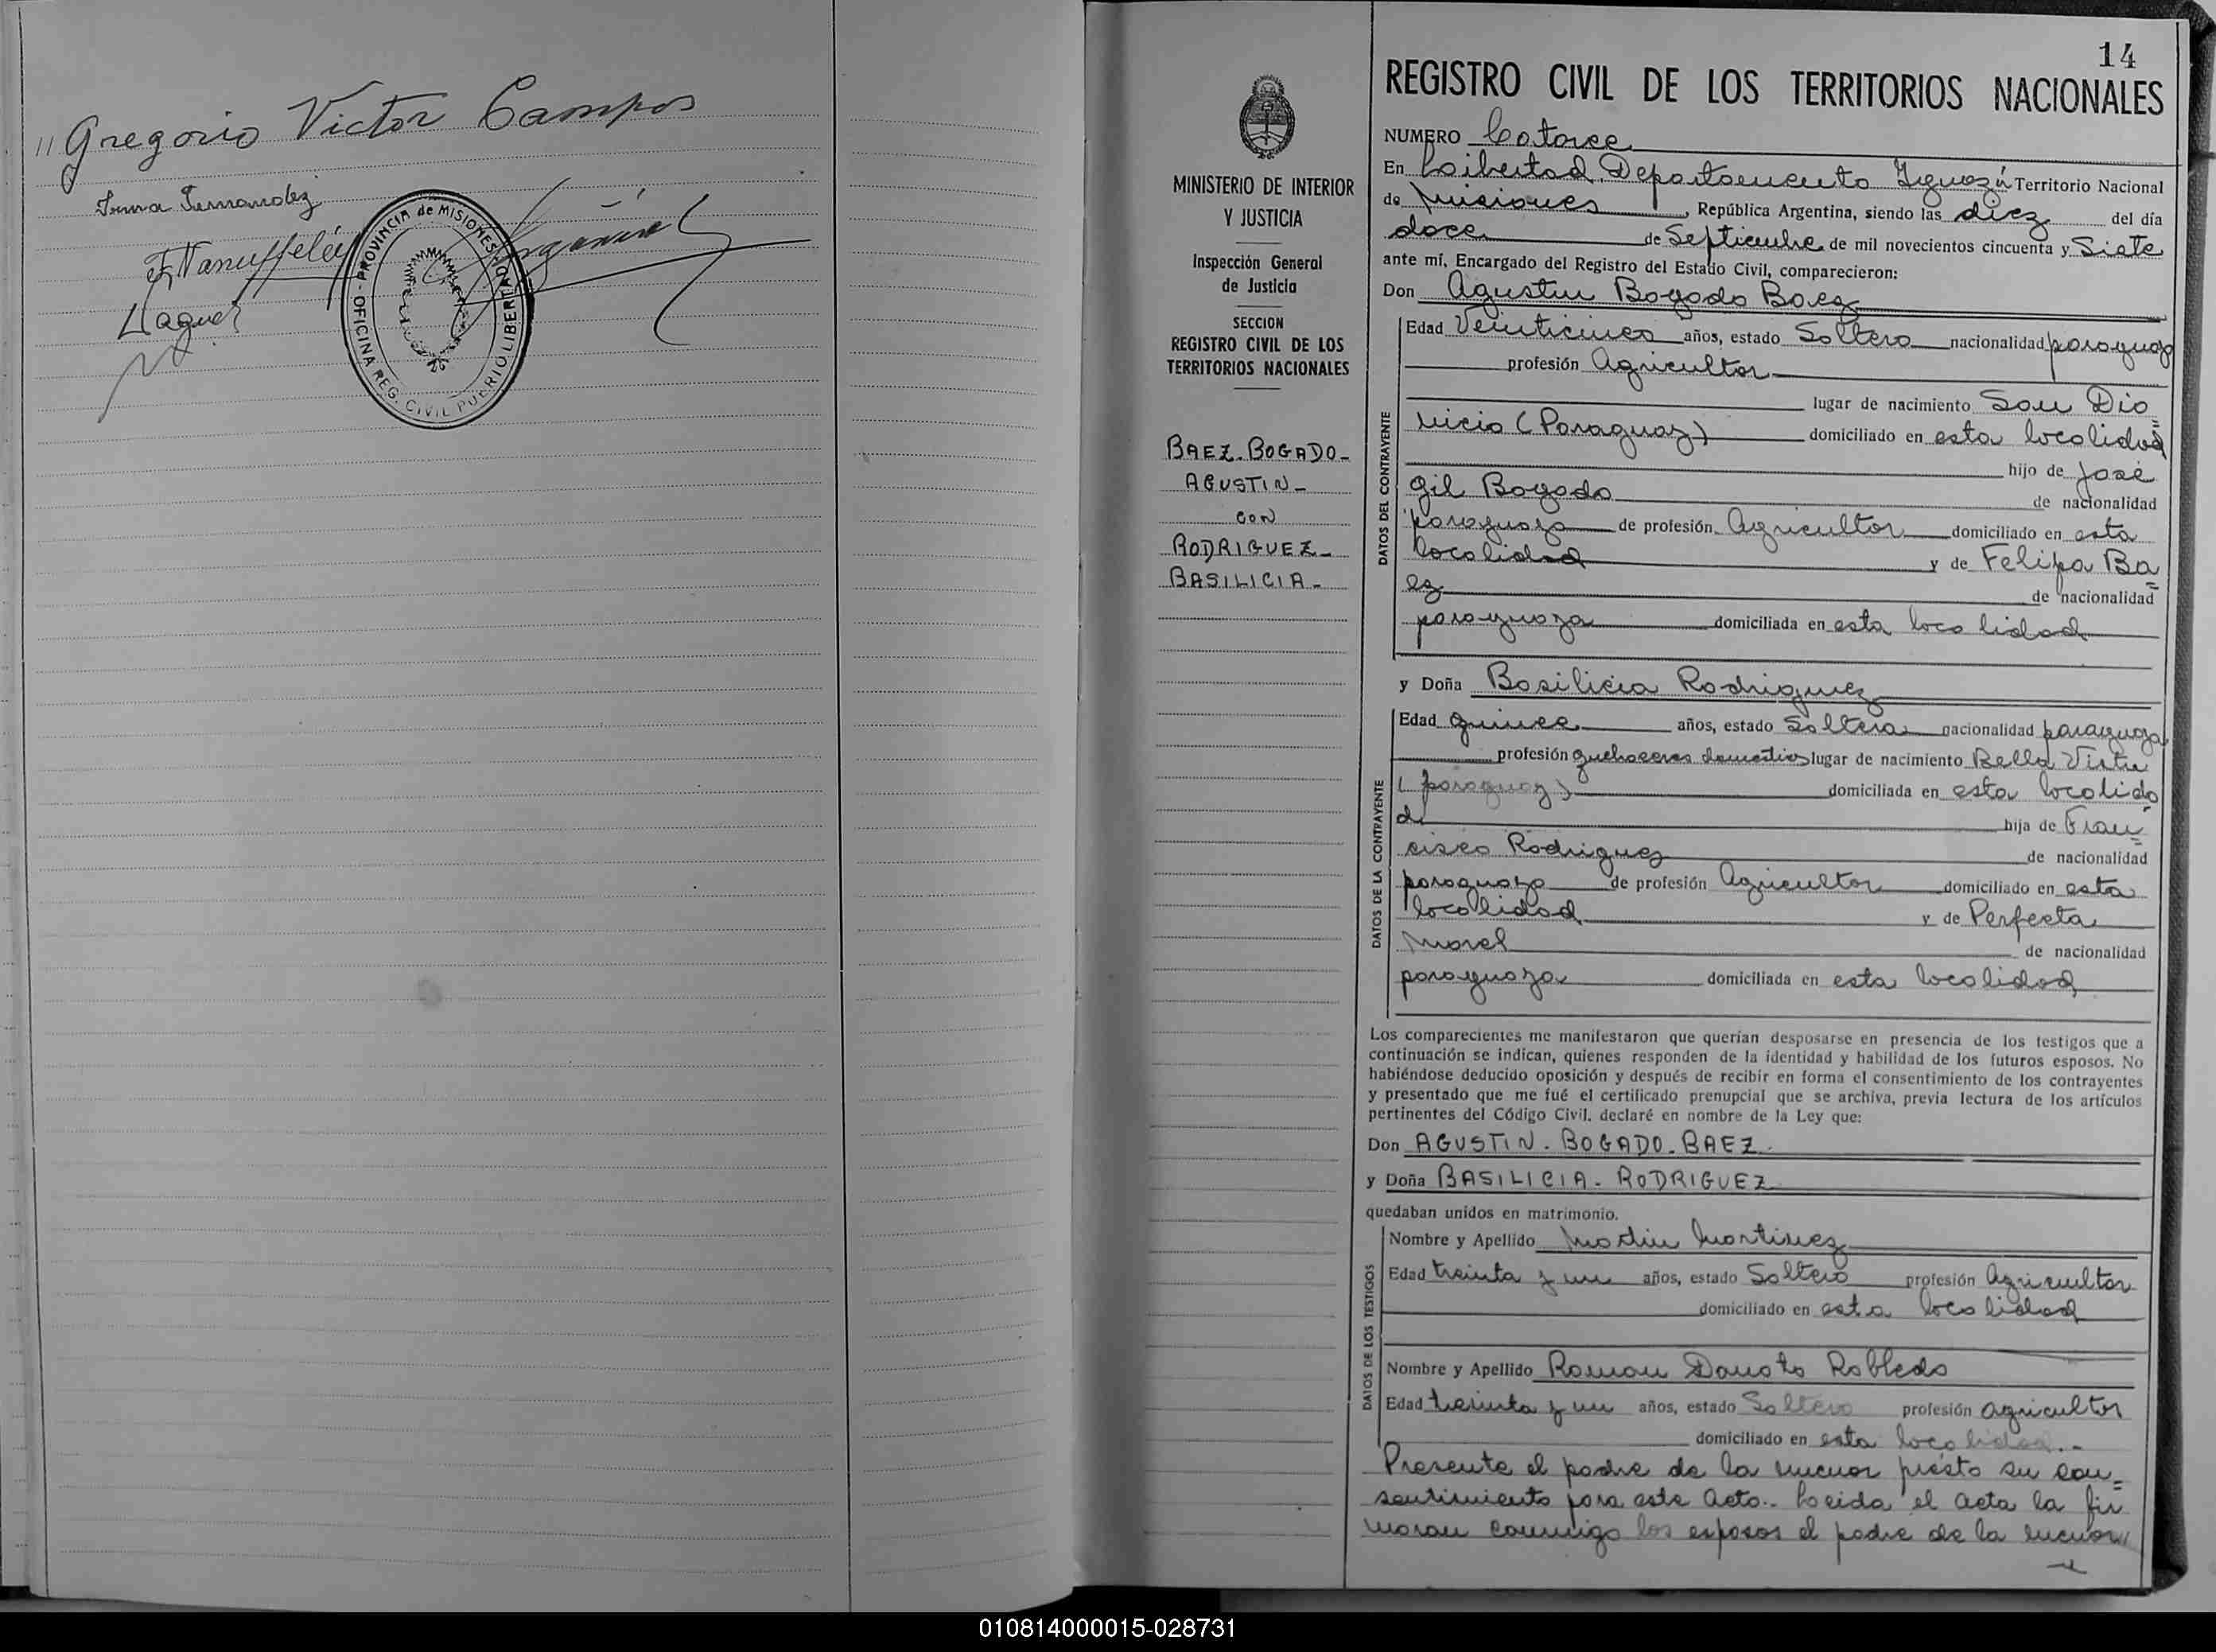 " Gregorio Victor Campos
Irma Fernandez
OFICINA REG. CIVIL PUERTO LIBERTAD - PROVINCIA de MISIONES
14
REGISTRO CIVIL DE LOS TERRITORIOS NACIONALES
NUMERO Catorce
En Libertad Departamento Iguazú Territorio Nacional
de Misiones, República Argentina, siendo las diez del día
doce de Septiembre de mil novecientos cincuenta y Siete
ante mí, Encargado del Registro del Estado Civil, comparecieron:
Don Agustin Bogado Baez
MINISTERIO DE INTERIOR
Y JUSTICIA
Inspección General
de Justicia
SECCION
REGISTRO CIVIL DE LOS
TERRITORIOS NACIONALES
BAEZ-BOGADO-
AGUSTIN-
CON
RODRIGUEZ-
BASILICIA-
DATOS DEL CONTRAYENTE
Edad Veinticinco años, estado Soltero nacionalidad paraguayo
profesión Agricultor
lugar de nacimiento San Dio=
nicio (Paraguay) domiciliado en esta localidad
hijo de José
Gil Bogado de nacionalidad
paraguaya de profesión Agricultor domiciliado en esta
localidad y de Felipa Ba=
ez de nacionalidad
paraguaya domiciliada en esta localidad
y Doña Basilicia Rodriguez
DATOS DE LA CONTRAYENTE
Edad quince años, estado Soltera nacionalidad paraguaya
profesión quehaceres domesticos lugar de nacimiento Bella Vista
(paraguay) domiciliada en esta localida
d hija de Fran=
cisco Rodriguez de nacionalidad
paraguaya de profesión Agricultor domiciliado en esta
localidad y de Perfecta
Morel de nacionalidad
paraguaya domiciliada en esta localidad
Los comparecientes me manifestaron que querían desposarse en presencia de los testigos que a
continuación se indican, quienes responden de la identidad y habilidad de los futuros esposos. No
habiéndose deducido oposición y después de recibir en forma el consentimiento de los contrayentes
y presentado que me fué el certificado prenupcial que se archiva, previa lectura de los artículos
pertinentes del Código Civil, declaré en nombre de la Ley que:
Don AGUSTIN-BOGADO-BAEZ-
y Doña BASILICIA-RODRIGUEZ
quedaban unidos en matrimonio.
DATOS DE LOS TESTIGOS
Nombre y Apellido Martin Martinez
Edad treinta y un años, estado Soltero profesión Agricultor
domiciliado en esta localidad
Nombre y Apellido Roman Donato Robledo
Edad treinta y un años, estado Soltero profesión agricultor
domiciliado en esta localidad.-
Presente el padre de la menor prestó su con=
sentimiento para este acto.- Leida el acta la fir
maron conmigo los esposos el padre de la menor//
010814000015-028731